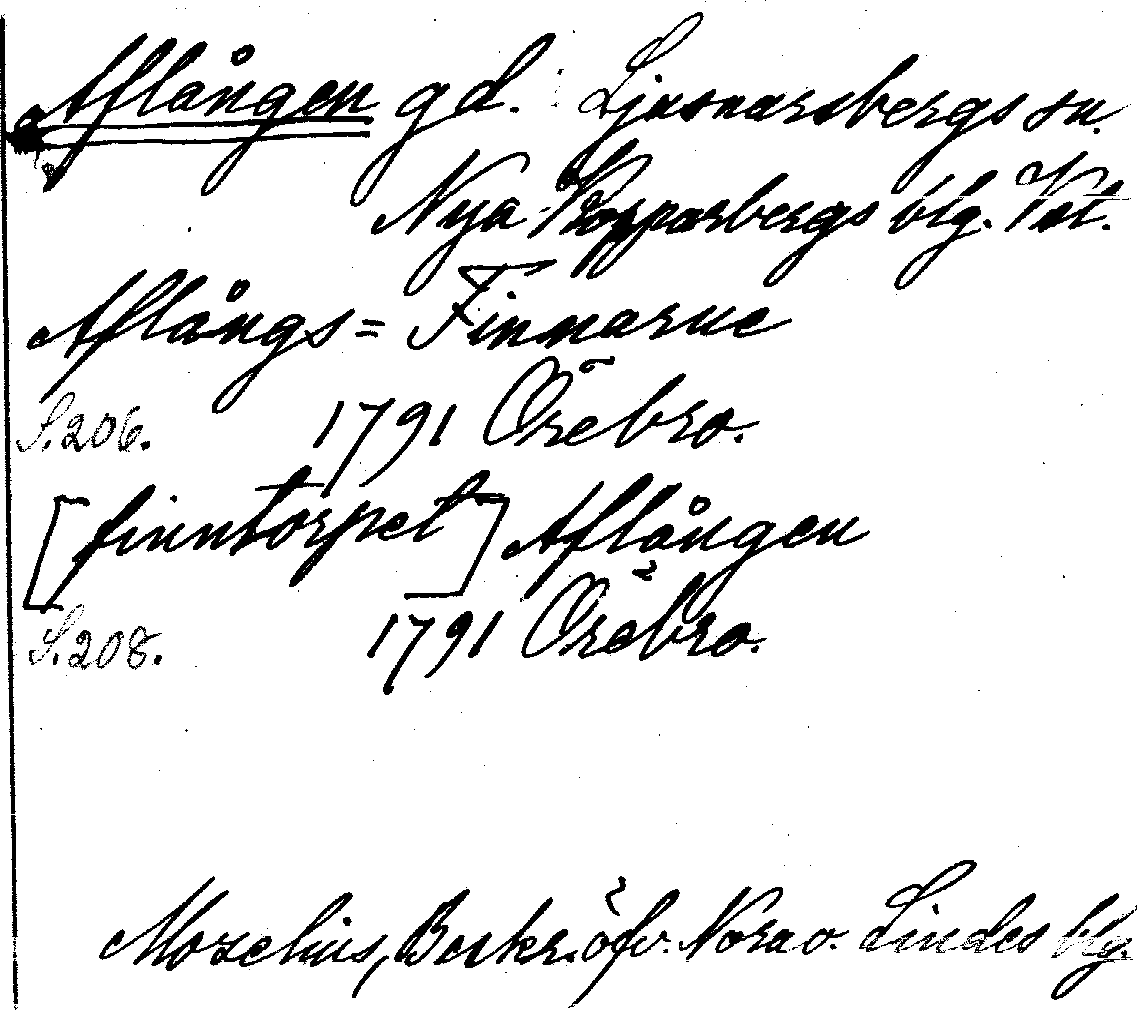 Aflången gd. Ljusnarsbergs sn.
Nya Kopparbergs blg. Vstl.
Aflångs = Finnarne
S. 206. 1791 Örebro.
[finntorpet] Aflången
S. 208. 1791 Örebro.
Mozelius, Beskr. öfv. Nora o. Lindes blg.